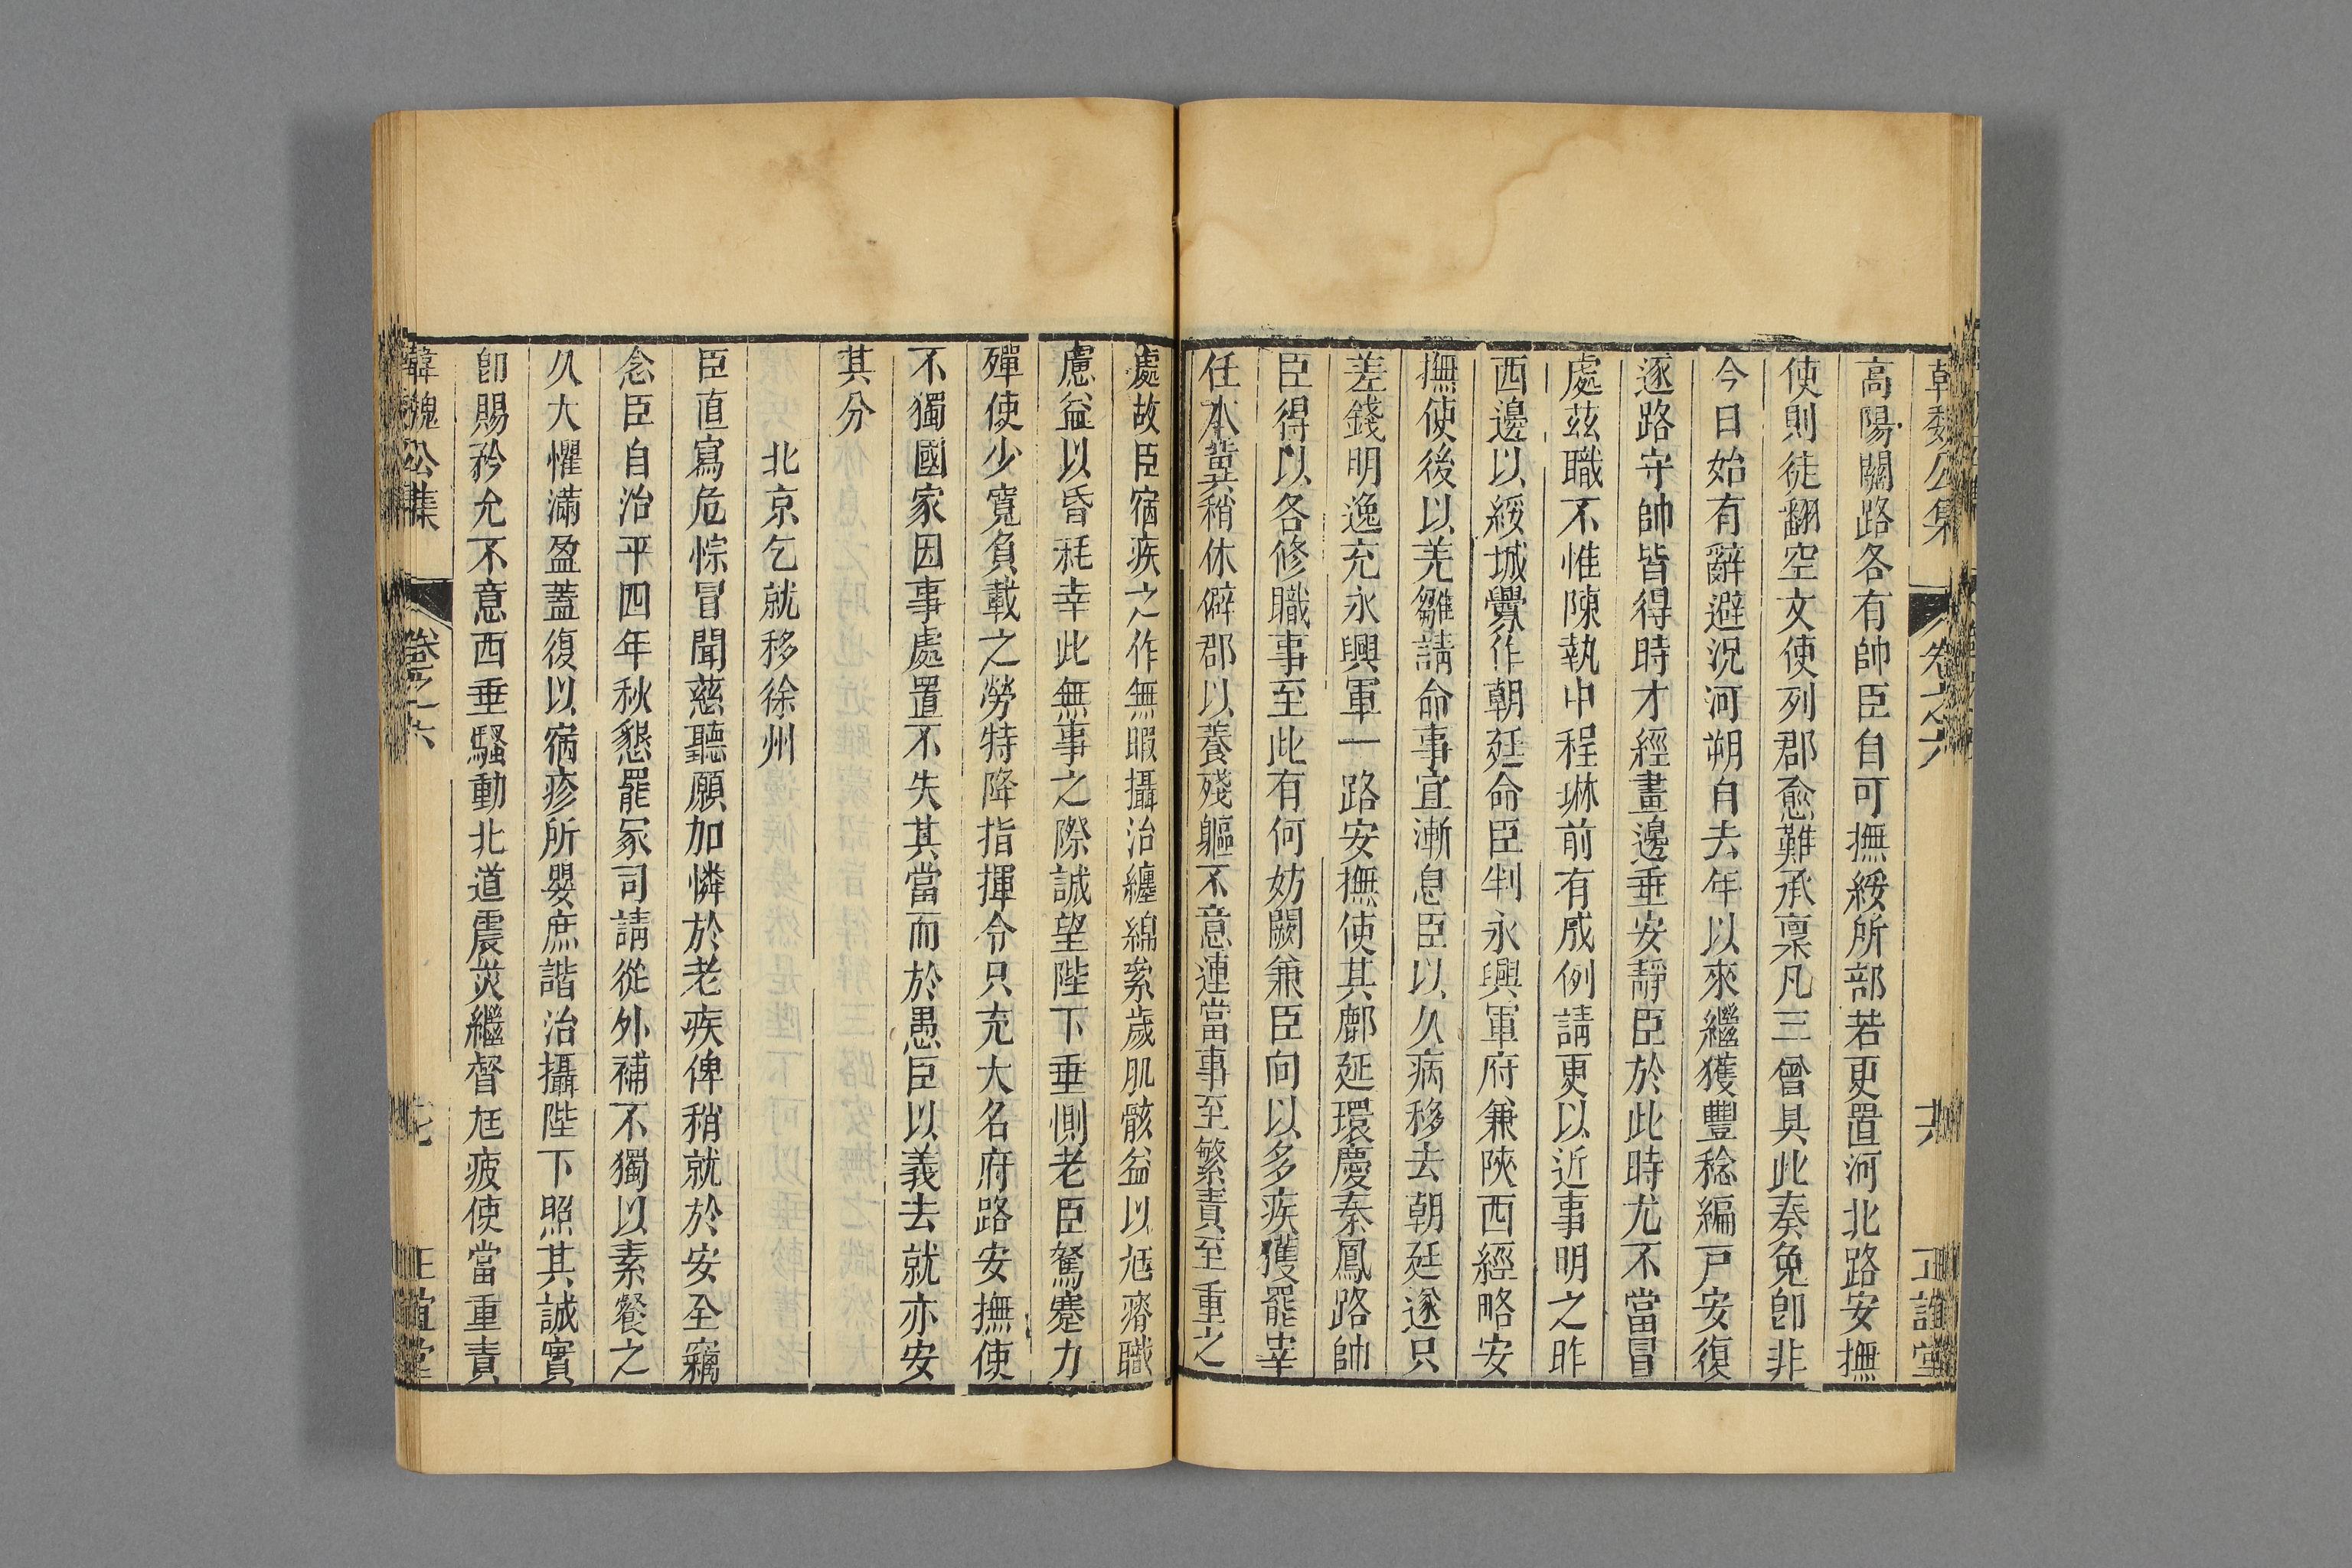 韓魏公集 卷之六 共 正誼堂
高陽關路各有帥臣自可撫綏所部若更置河北路安撫
使則徒翻空文使列郡愈難承稟凡三曾具此奏免卽非
今日始有辭避況河朔自去年以來繼獲豐稔編戸安復
逐路守帥皆得時才經畫邊垂安靜臣於此時尤不當冒
處茲職不惟陳執中程琳前有成例請更以近事明之昨
西邊以綏城釁作朝廷命臣判永興軍府兼陝西經略安
撫使後以羌雛請命事宜漸息臣以久病移去朝廷遂只
差錢明逸充永興軍一路安撫使其鄜延環慶秦鳳路帥
臣得以各修職事至此有何妨闕兼臣向以多疾獲罷宰
任本冀稍休僻郡以養殘軀不意連當事至繁責至重之
處故臣宿疾之作無暇攝治纏綿累歲肌骸益以尫瘠職
慮益以昏耗幸此無事之際誠望陛下垂惻老臣駑蹇力
殫使少寬負載之勞特降指揮令只充大名府路安撫使
不獨國家因事處置不失其當而於愚臣以義去就亦安
其分
北京乞就移徐州
臣直寫危悰冒聞慈聽願加憐於老疾俾稍就於安全竊
念臣自治平四年秋懇罷冢司請從外補不獨以素餐之
久大懼滿盈蓋復以宿疹所嬰庶諧治攝陛下照其誠實
卽賜矜允不意西垂騷動北道震災繼督尫疲使當重責
韓魏公集 卷之六 七 正誼堂